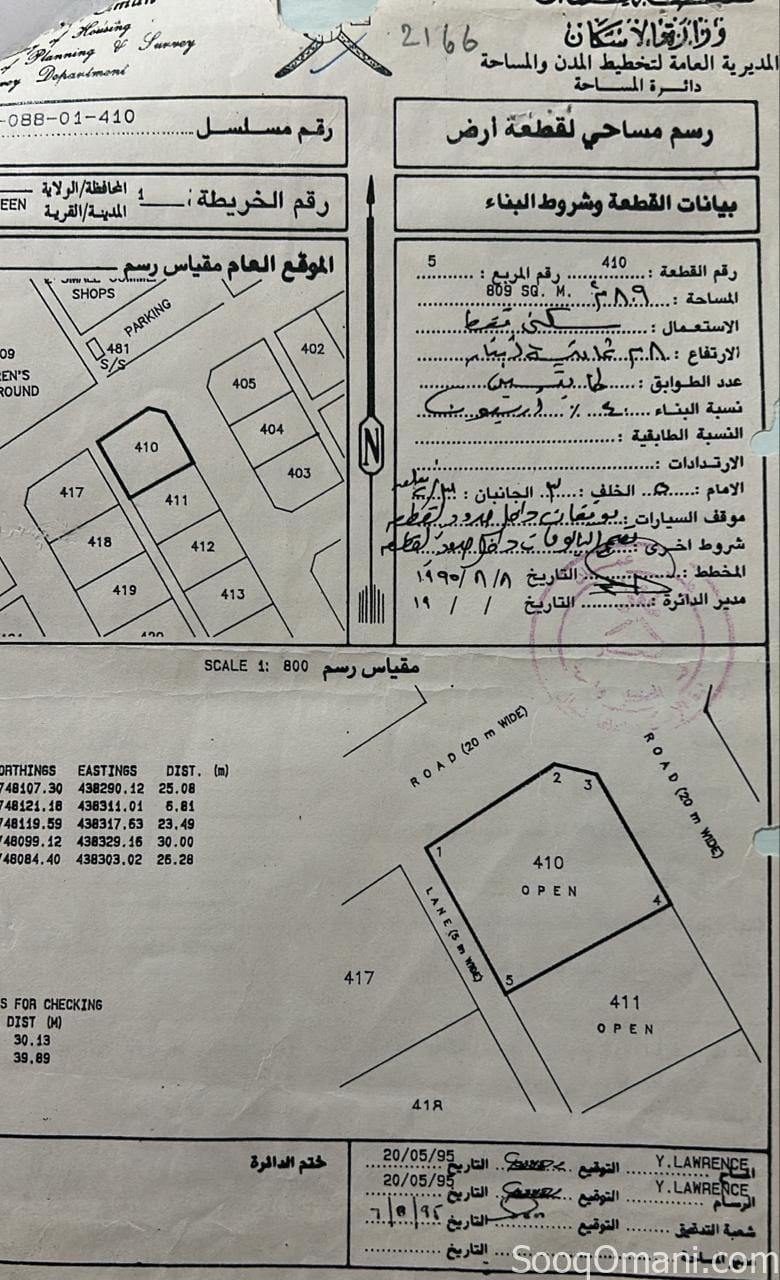 of Housing
of Planning & Survey
Department
2166
وزارة الاسكان
المديرية العامة لتخطيط المدن والمساحة
دائرة المساحة
-088-01-410
رقم مسلسل
رسم مساحي لقطعة أرض
EEN
المحافظة/الولاية
المدينة/القرية
1
رقم الخريطة :
بيانات القطعة وشروط البناء
الموقع العام مقياس رسم
رقم القطعة : 410 رقم المربع : 5
المساحة : ٨٠٩ م٢ 809 SQ. M.
الاستعمال : سكني فقط
الارتفاع :
عدد الطوابق : طابقين
نسبة البناء : ٤٠ ٪ اربعون
النسبة الطابقية :
الارتدادات :
الامام : ٥ الخلف : ٣ الجانبان :
موقف السيارات : داخل حدود القطعة
شروط اخرى :
المخطط : التاريخ ١٩٩٥/٨/٨
مدير الدائرة : التاريخ / / ١٩
SHOPS
PARKING
481
S/S
09
EN'S
ROUND
402
405
404
403
410
417
411
418
412
419
413
420
N
SCALE 1: 800 مقياس رسم
ORTHINGS EASTINGS DIST. (m)
748107.30 438290.12 25.08
748121.18 438311.01 6.81
748119.59 438317.63 23.49
748099.12 438329.16 30.00
748084.40 438303.02 26.28
ROAD (20 m WIDE)
ROAD (20 m WIDE)
LANE (5 m WIDE)
1
2
3
4
5
410
OPEN
417
411
OPEN
418
S FOR CHECKING
DIST (M)
30.13
39.89
ختم الدائرة
Y.LAWRENCE التوقيع التاريخ 20/05/95
المساح
Y.LAWRENCE التوقيع التاريخ 20/05/95
الرسام
شعبة التدقيق التوقيع التاريخ 7/8/95
التوقيع التاريخ
SooqOmani.com